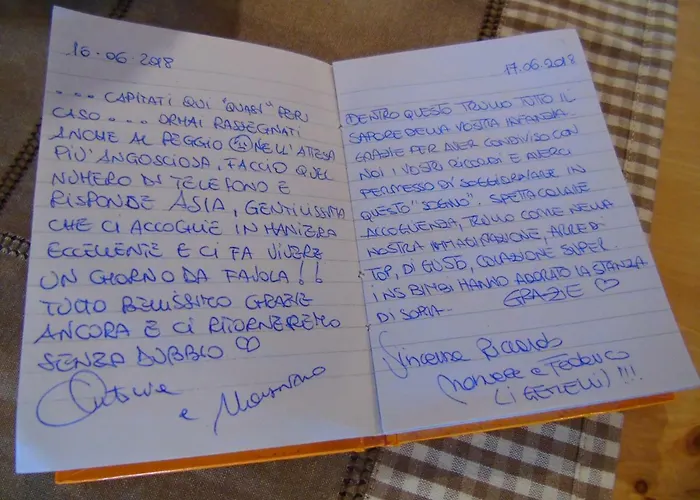 16.06.2018
.... CAPITATI QUI "QUASI" PER
CASO .... ORMAI RASSEGNATI
ANCHE AL PEGGIO NELL'ATTESA
PIU' ANGOSCIOSA, FACCIO QUEL
NUMERO DI TELEFONO E
RISPONDE ASIA, GENTILISSIMA
CHE CI ACCOGLIE IN MANIERA
ECCELLENTE E CI FA VIVERE
UN GIORNO DA FAVOLA!!
TUTTO BELLISSIMO GRAZIE
ANCORA E CI RITORNEREMO
SENZA DUBBIO ♡
e Massimo
17.06.2018
DENTRO QUESTO TRULLO TUTTO IL
SAPORE DELLA VOSTRA INFANZIA.
GRAZIE PER AVER CONDIVISO CON
NOI I VOSTRI RICORDI E AVERCI
PERMESSO DI SOGGIORNARE IN
QUESTO "SOGNO". SPETTACOLARE
ACCOGLIENZA, TRULLO COME NELLA
NOSTRA IMMAGINAZIONE, ARREDI
TOP, DI GUSTO, COLAZIONE SUPER.
I NS BIMBI HANNO ADORATO LA STANZA
DI SOPRA. GRAZIE ♡
Riccardo
e Federico
(I GEMELLI) !!!